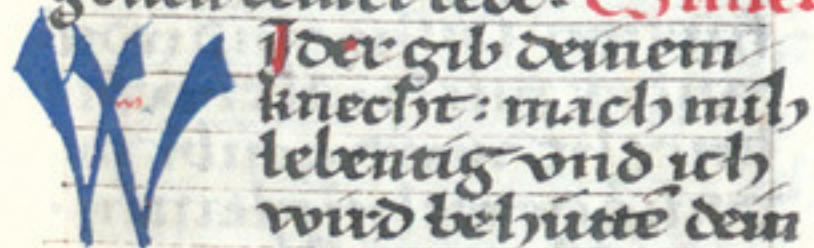 WIder gib deinem
knecht: mach mih
lebentig vnd ich
wird behuttē dein